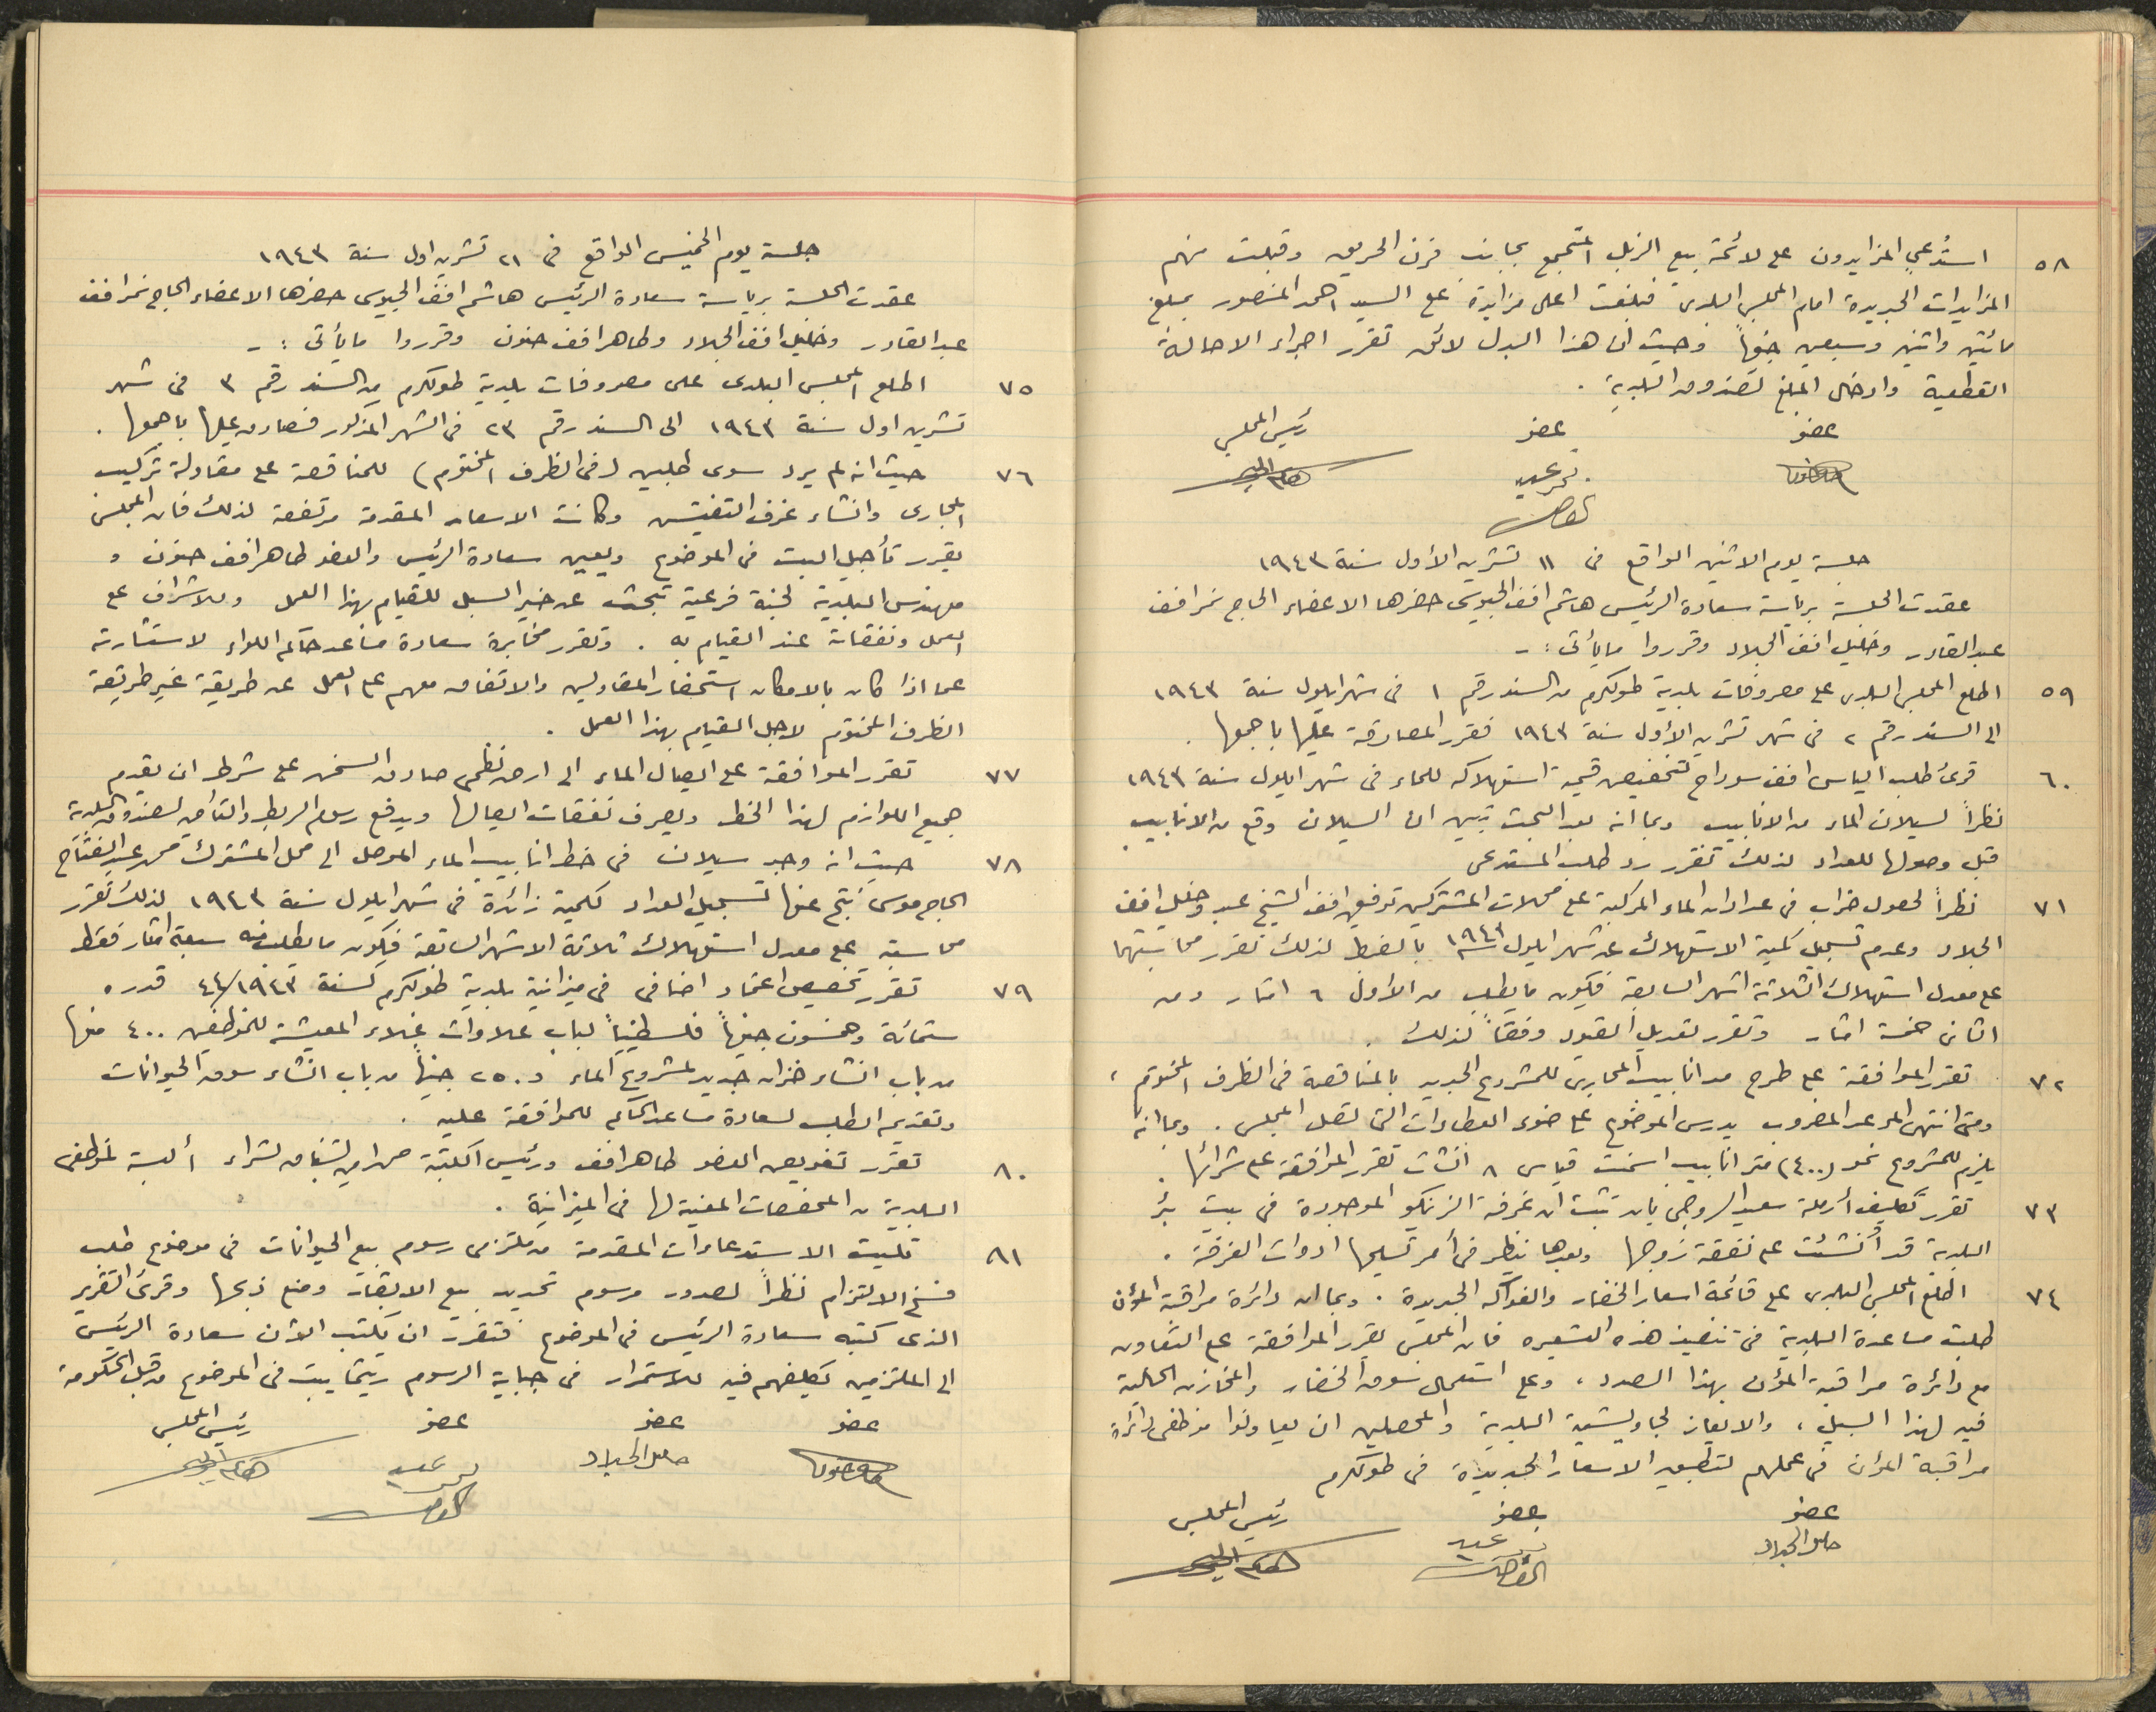 ٥٨ استُدعي المزايدون على لائحة بيع الزبل المتجمع بجانب فرن الحريق وقبلت منهم
المزايدات الجديدة امام المجلس البلدي فبلغت اعلى مزايدة على السيد احمد المنصور بمبلغ
مائتين واثنين وسبعين جنيهاً وحيث ان هذا البدل لائق تقرر اجراء الاحالة
القطعية وادخال المبلغ لصندوق البلدية .
عضو عضو رئيس المجلس
جلسة يوم الاثنين الواقع في ١١ تشرين الأول سنة ١٩٤٣
عقدت الجلسة برياسة سعادة الرئيس هاشم افندي الجيوسي حضرها الاعضاء الحاج نمر افندي
عبد القادر وخليل افندي الجلاد وقرروا ما يأتي : -
٥٩ اطلع المجلس البلدي على مصروفات بلدية طولكرم من السند رقم ١ في شهر ايلول سنة ١٩٤٣
الى السند رقم ٢ في شهر تشرين الأول سنة ١٩٤٣ فقرر المصادقة عليها باجمعها .
٦٠ قرئ طلب الياس افندي سوداح لتخفيض قيمة استهلاكه للماء في شهر ايلول سنة ١٩٤٣
نظراً لسيلان الماء من الانابيب وبما انه بعد البحث تبين ان السيلان وقع من الانابيب
قبل وصولها للعداد لذلك تقرر رد طلب المستدعي
٧١ نظراً لحصول خراب في عدادات الماء المركبة على محلات المشتركين توفيق افندي الشيخ عبيد وخليل افندي
الجلاد وعدم تسجيل كمية الاستهلاك عن شهر ايلول سنة ١٩٤٣ بالضبط لذلك تقرر محاسبتهما
على معدل استهلاك الثلاثة اشهر السابقة فيكون ما يطلب من الأول ٦ امتار ومن
الثاني خمسة امتار وتقرر تعديل القيود وفقاً لذلك .
٧٢ تقرر الموافقة على طرح مد انابيب المجاري للمشروع الجديد بالمناقصة في الظرف المختوم ،
ومتى انتهى الموعد المضروب يدرس الموضوع على ضوء العطاءات التي تصل المجلس . وبما انه
يلزم للمشروع نحو (٤٠٠) متر انابيب اسمنت قياس ٨ انشات تقرر الموافقة على شرائها .
٧٣ تقرر تكليف أرملة سعيد السروجي بان تثبت ان غرفة الزنكو الموجودة في بيت بئر
البلدية قد أُنشئت على نفقة زوجها وبعدها ينظر في أمر تسليمها ادوات الغرفة .
٧٤ اطلع المجلس البلدي على قائمة اسعار الخضار والفواكه الجديدة . وبما ان دائرة مراقبة المؤن
طلبت مساعدة البلدية في تنفيذ هذه التسعيره فان المجلس يقرر الموافقة على التعاون
مع دائرة مراقبة المؤن بهذا الصدد ، وعلى استعمال سوق الخضار والمخازن الخالية
فيه لهذا السبيل ، والايعاز لجاويشية البلدية والمحصلين ان يعاونوا موظفي دائرة
مراقبة المؤن في عملهم لتطبيق الاسعار الجديدة في طولكرم
عضو عضو رئيس المجلس
خليل الجلاد
جلسة يوم الخميس الواقع في ٢١ تشرين اول سنة ١٩٤٣
عقدت الجلسة برياسة سعادة الرئيس هاشم افندي الجيوسي حضرها الاعضاء الحاج نمر افندي
عبد القادر وخليل افندي الجلاد وطاهر افندي حنون وقرروا ما يأتي : -
٧٥ اطلع المجلس البلدي على مصروفات بلدية طولكرم من السند رقم ٣ في شهر
تشرين اول سنة ١٩٤٣ الى السند رقم ٢٣ في الشهر المذكور فصادق عليها باجمعها .
٧٦ حيث انه لم يرد سوى طلبين (في الظرف المختوم) للمناقصة على مقاولة تركيب
المجاري وانشاء غرف التفتيش وكانت الاسعار المقدمة مرتفعة لذلك فان المجلس
يقرر تأجيل البت في الموضوع ويعين سعادة الرئيس والعضو طاهر افندي حنون و
مهندس البلدية لجنة فرعية تبحث عن خير السبل للقيام بهذا العمل وللاشراف على
العمل ونفقاته عند القيام به . وتقرر مخابرة سعادة مساعد حاكم اللواء لاستشارته
عما اذا كان بالامكان استحضار المقاولين والاتفاق معهم على العمل عن طريقة غير طريقة
الظرف المختوم لاجل القيام بهذا العمل .
٧٧ تقرر الموافقة على ايصال الماء الى ارض نظمي صادق السخن على شرط ان يقدم
جميع اللوازم لهذا الخط ويصرف نفقات ايصالها ويدفع رسوم الربط والتأمين لصندوق البلدية
٧٨ حيث انه وجد سيلان في خط انابيب الماء الموصل الى محل المشترك محمد عبد الفتاح
الحاج موسى نتج عنها تسجيل العداد لكمية زائدة في شهر ايلول سنة ١٩٤٣ لذلك تقرر
محاسبته على معدل استهلاك ثلاثة الاشهر السابقة فيكون ما يطلب منه سبعة امتار فقط
٧٩ تقرر تخصيص اعتماد اضافي في ميزانية بلدية طولكرم لسنة ٤٤/١٩٤٣ قدره
ستمائة وخمسون جنيهاً فلسطينياً لباب علاوات غلاء المعيشة للموظفين ٤٠٠ منها
من باب انشاء خزان جديد لمشروع الماء و ٢٥٠ جنيهاً من باب انشاء سوق الحيوانات
وتقديم الطلب لسعادة مساعد الحاكم للموافقة عليه .
٨٠ تقرر تفويض العضو طاهر افندي ورئيس الكتبة لشراء ألبسة لموظفي
البلدية من المخصصات المعينة لها في الميزانية .
٨١ تليت الاستدعاءات المقدمة من ملتزمي رسوم بيع الحيوانات في موضوع طلب
فسخ الالتزام نظراً لصدور مرسوم تحديد بيع الابقار ومنع ذبحها وقرئ التقرير
الذي كتبه سعادة الرئيس في الموضوع فتقرر ان يكتب الآن سعادة الرئيس
الى الملتزمين تكليفهم فيه للاستمرار في جباية الرسوم ريثما يبت في الموضوع من قبل الحكومة
عضو عضو عضو رئيس المجلس
خليل الجلاد